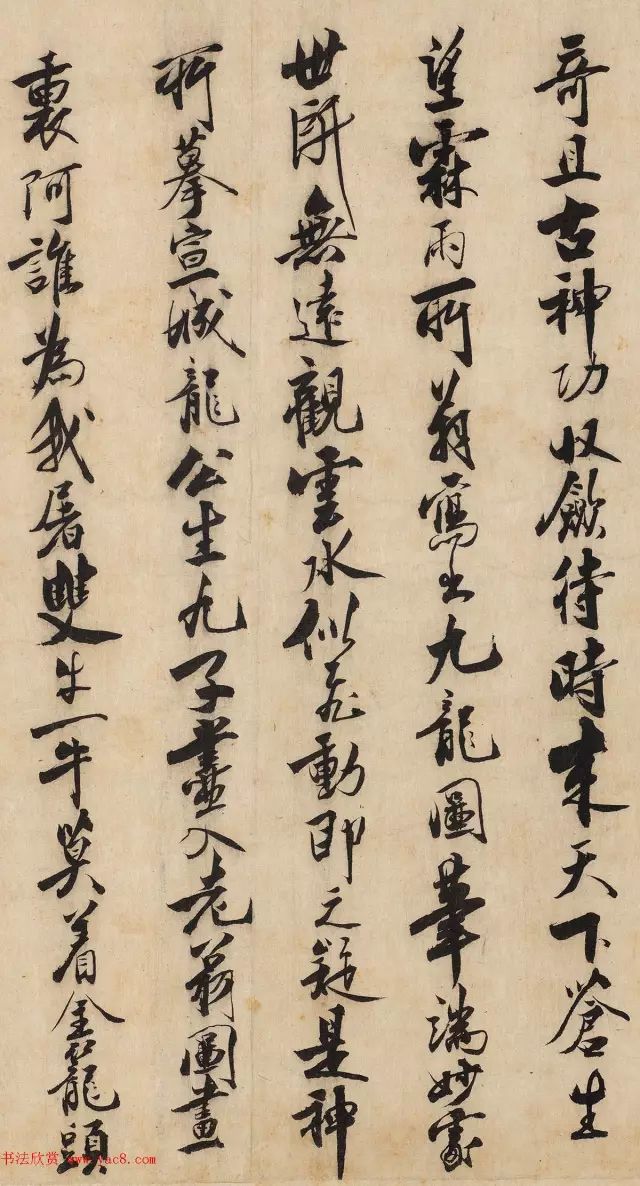 奇且古神功收斂待時來天下蒼生
望霖雨所翁寫出九龍圖筆端妙處
世所無遠觀雲水似飛動即之疑是神
所摹宣城龍公生九子盡入老翁圖畫
裏阿誰為我屠雙牛一牛莫着金籠頭
书法欣赏 www.yac8.com